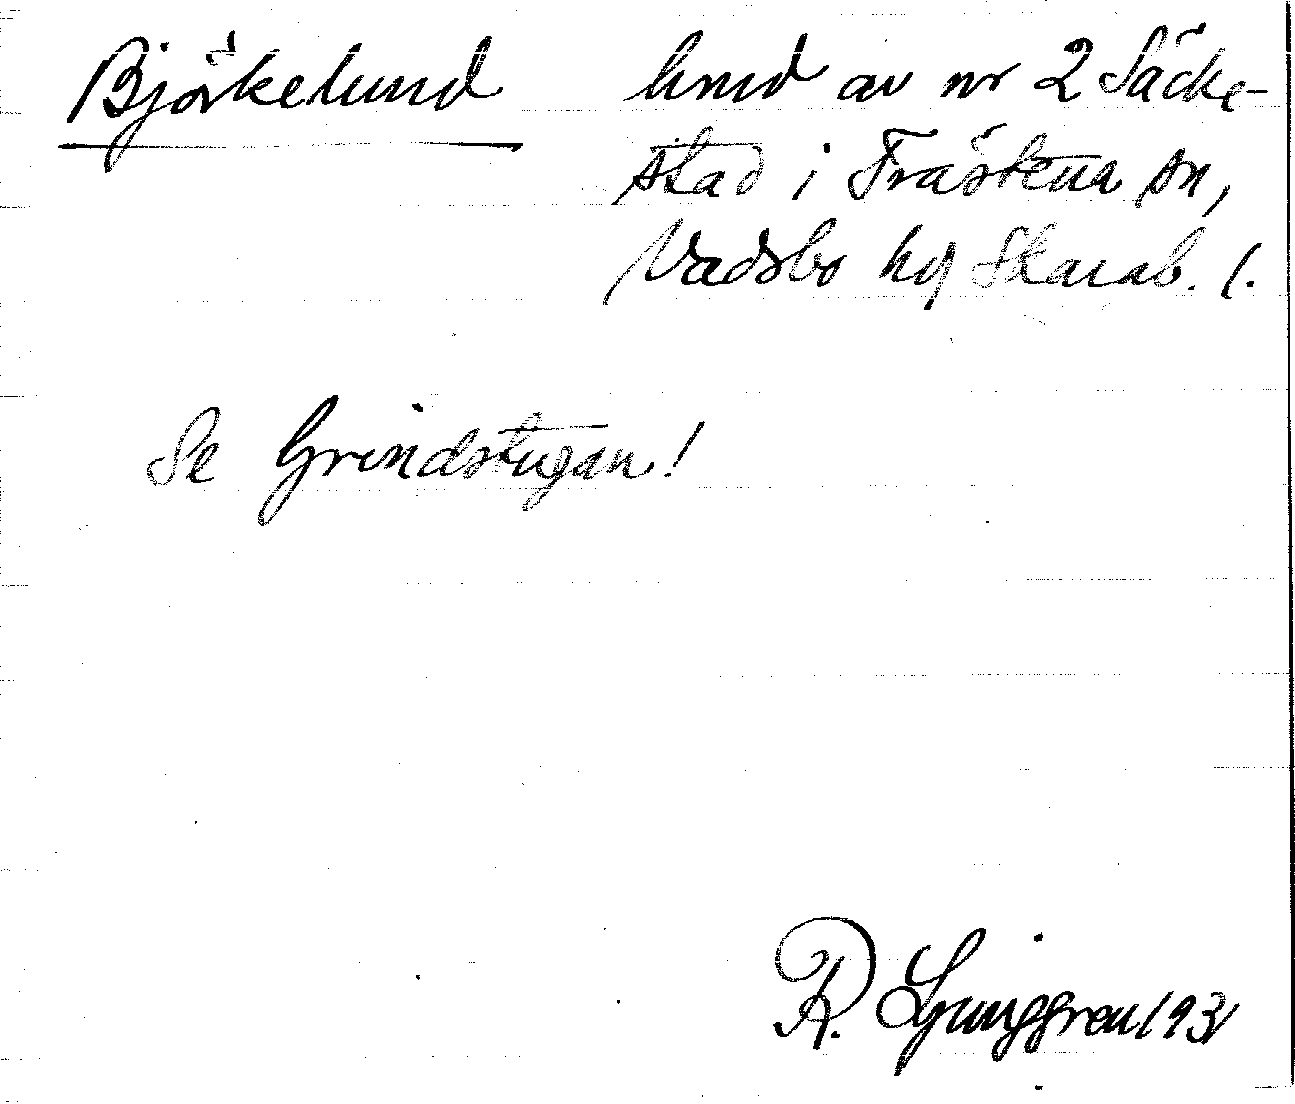 Björkelund hmd av nr 2 Säcke-
stad i Fråstena sn,
Vadsbo hd Skarab. l.
Se Grindstugan!
R. Ljunggren 1931